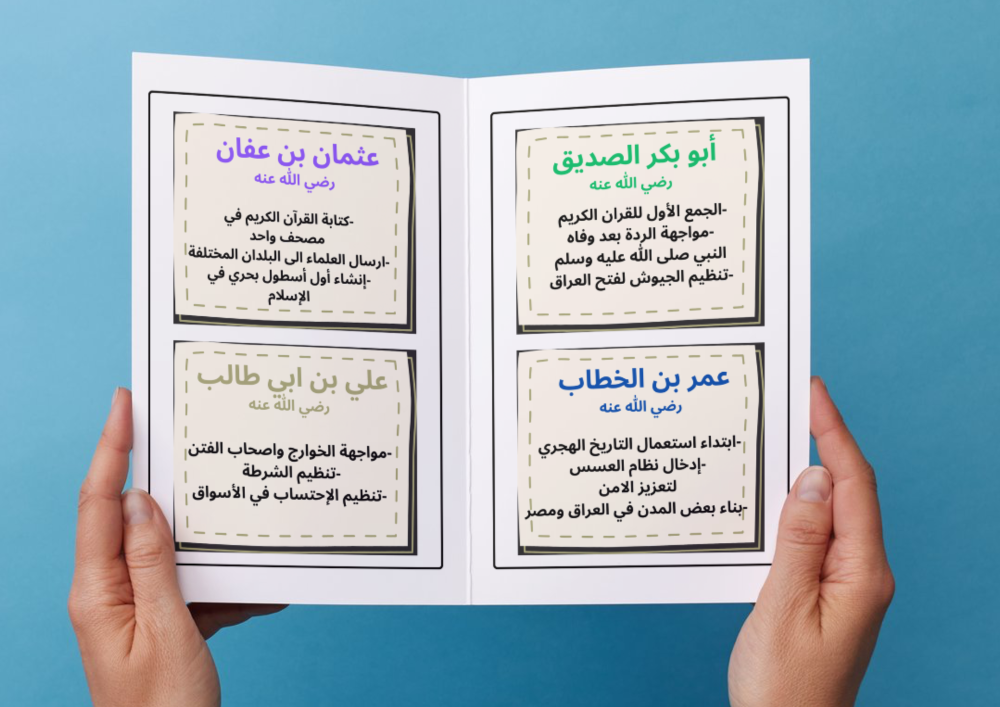 أبو بكر الصديق
رضي الله عنه
-الجمع الأول للقران الكريم
-مواجهة الردة بعد وفاه
النبي صلى الله عليه وسلم
-تنظيم الجيوش لفتح العراق
عمر بن الخطاب
رضي الله عنه
-ابتداء استعمال التاريخ الهجري
-إدخال نظام العسس
لتعزيز الامن
-بناء بعض المدن في العراق ومصر
عثمان بن عفان
رضي الله عنه
-كتابة القرآن الكريم في
مصحف واحد
-ارسال العلماء الى البلدان المختلفة
-إنشاء أول أسطول بحري في
الإسلام
علي بن ابي طالب
رضي الله عنه
-مواجهة الخوارج واصحاب الفتن
-تنظيم الشرطة
-تنظيم الإحتساب في الأسواق